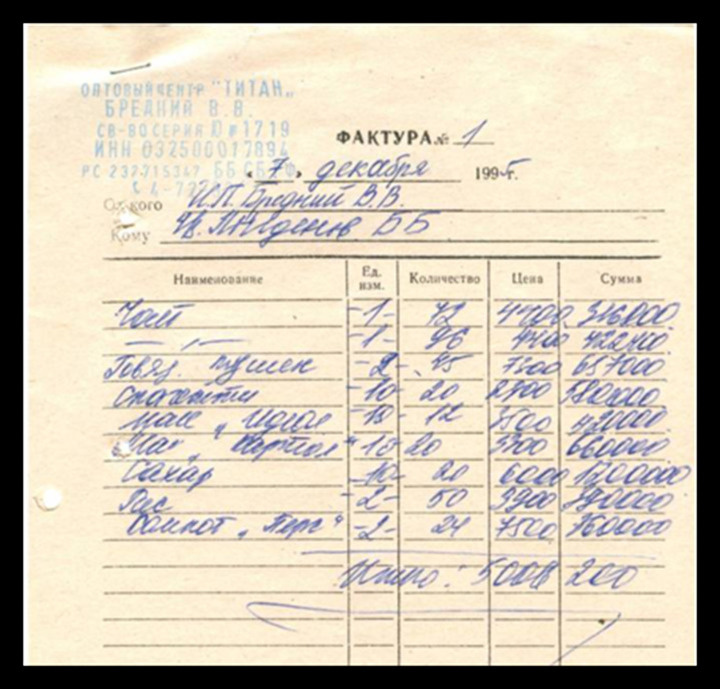 ОПТОВЫЙ ЦЕНТР "ТИТАН"
БРЕДНИЙ В.В.
СВ-ВО СЕРИЯ Ю № 1719
ИНН 032500017894
РС 232715347 ББ СБ РФ
ФАКТУРА № 1
"7" декабря 1995 г.
От кого И.П. Бредний В.В.
Кому ББ
Наименование Ед. изм. Количество Цена Сумма
Чай -1- 72 4400 316800
— „ — -1- 96 4400 422400
тушен -2- 45 7300 657000
Спагетти -10- 20 2900 580000
-10- 12 3500 420000
-10- 20 3300 660000
Сахар -10- 20 6000 1200000
Рис -2- 50 3900 390000
-2- 24 7500 360000
Итого: 5006200